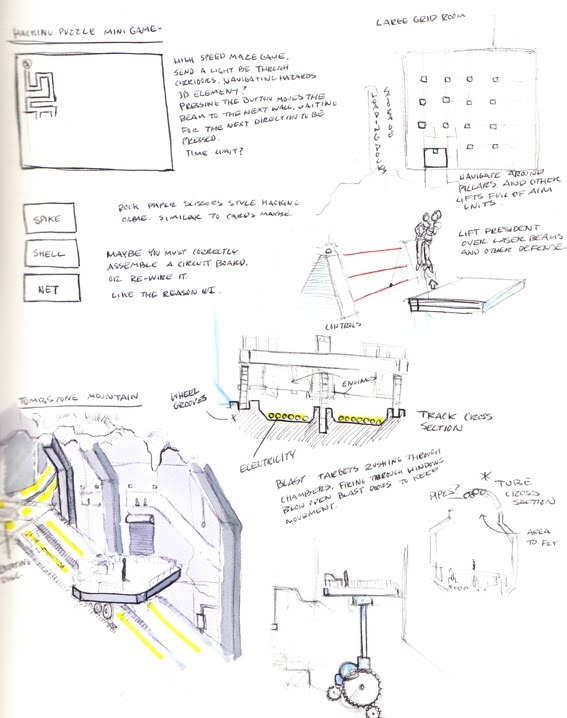 HACKING PUZZLE MINI GAME-
HIGH SPEED MAZE GAME,
SEND A LIGHT BE THROUGH
CORRIDORS, NAVIGATING HAZARDS
3D ELEMENT?
PRESSING THE BUTTON MOVES THE
BEAM TO THE NEXT WALL, WAITING
FOR THE NEXT DIRECTION TO BE
PRESSED.
TIME LIMIT?
LARGE GRID ROOM
LOADING DOCKS
STORAGE
NAVIGATE AROUND
PILLARS AND OTHER
LIFTS FULL OF AIM
UNITS.
SPIKE
SHELL
NET
ROCK PAPER SCISSORS STYLE HACKING
GAME. SIMILAR TO CARDS MAYBE
MAYBE YOU MUST CORRECTLY
ASSEMBLE A CIRCUIT BOARD,
OR RE-WIRE IT.
LIKE THE REASON UI.
LIFT PRESIDENT
OVER LASER BEAMS
AND OTHER DEFENSE.
CONTROLS
ENGINES
WHEEL
GROOVES
TRACK CROSS
SECTION
ELECTRICITY
TOMBSTONE MOUNTAIN
BLAST TARGETS RUSHING THROUGH
CHAMBERS, FIRING THROUGH WINDOWS
BLOW OPEN BLAST DOORS TO KEEP
MOVEMENT.
PIPES?
* TUBE
CROSS
SECTION
AREA
TO FLY